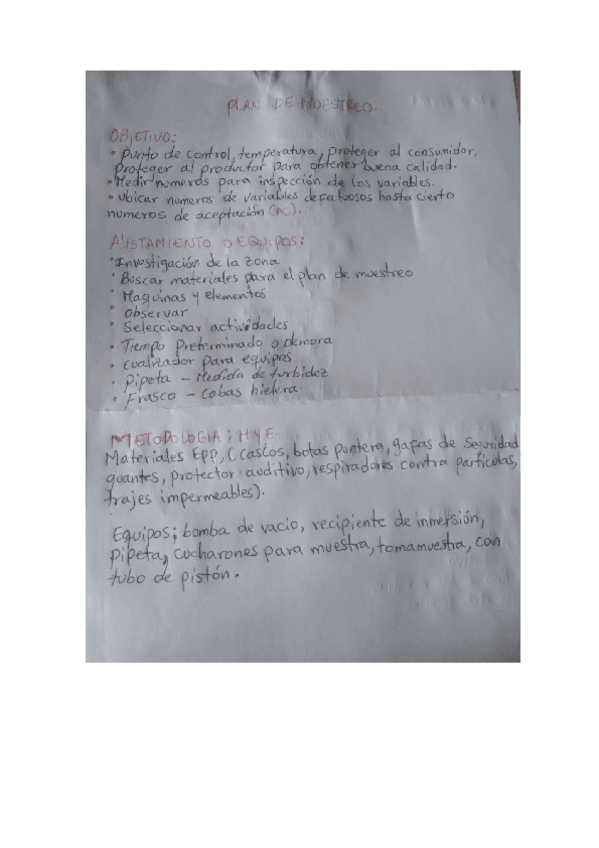 PLAN DE MUESTREO.
OBJETIVO:
• Punto de control, temperatura, proteger al consumidor,
proteger al productor para obtener buena calidad.
• Medir numeros para inspección de los variables.
• Ubicar numeros de variables defectuosos hasta cierto
numeros de aceptación (AC).
ALISTAMIENTO O EQUIPOS:
• Investigación de la zona
• Buscar materiales para el plan de muestreo
• Maquinas y elementos
• Observar
• Seleccionar actividades
• Tiempo Preterminado o demora
• Coalizador para equipos
• Pipeta – Medida de turbidez
• Frasco – Cabas hielera.
METODOLOGIA: H Y F.
Materiales EPP, (cascos, botas puntera, gafas de seguridad
guantes, protector auditivo, respiradores contra particulas,
trajes impermeables).
Equipos; bomba de vacio, recipiente de inmersión,
pipeta, cucharones para muestra, tomamuestra, con
tubo de pistón.